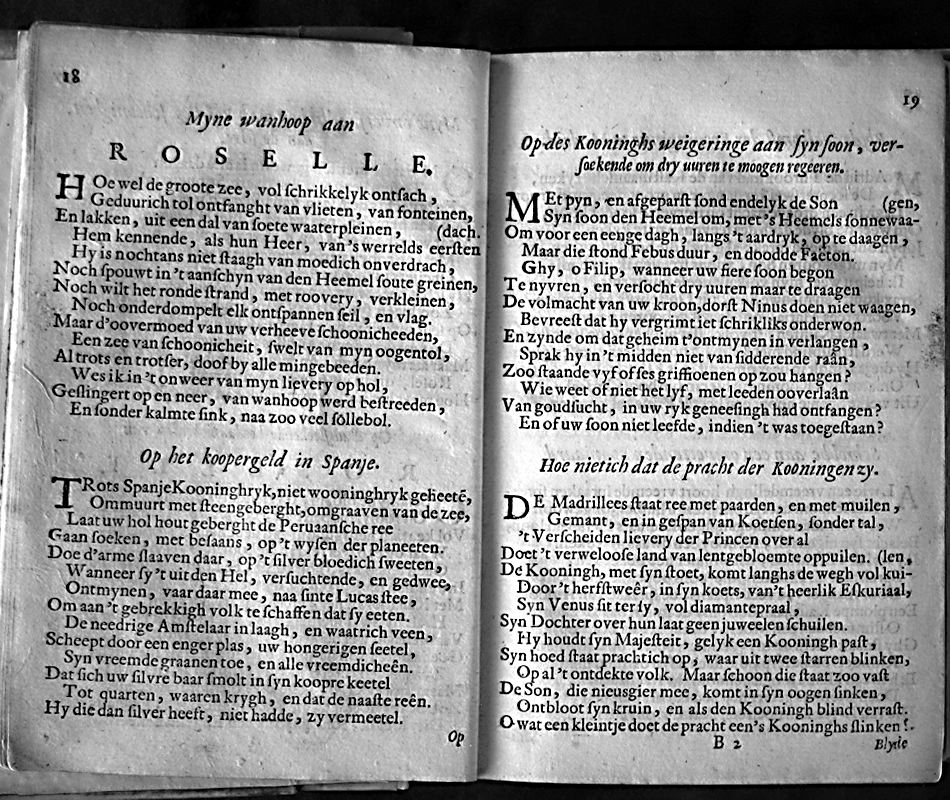 18
Myne wanhoop aan
ROSELLE.
HOe wel de groote zee, vol schrikkelyk ontsach,
Geduurich tol ontfanght van vlieten, van fonteinen,
En lakken, uit een dal van soete waaterpleinen, (dach.
Hem kennende, als hun Heer, van's werrelds eersten
Hy is nochtans niet staagh van moedich onverdrach,
Noch spouwt in 't aanschyn van den Heemel soute greinen,
Noch wilt het ronde strand, met roovery, verkleinen,
Noch onderdompelt elk ontspannen seil, en vlag.
Maar d'overmoed van uw verheeve schoonicheeden,
Een zee van schoonicheit, swelt van myn oogentol,
Al trots en trotser, doof by alle mingebeeden.
Wes ik in 't onweer van myn lievery op hol,
Geslingert op en neer, van wanhoop werd bestreeden,
En sonder kalmte sink, naa zoo veel sollebol.
Op het koopergeld in Spanje.
TRots Spanje Kooninghryk, niet wooninghryk geheeten,
Ommuurt met steengeberght, omgraaven van de zee,
Laat uw hol hout geberght de Peruaansche ree
Gaan soeken, met besaans, op 't wysen der planeeten.
Doe d'arme slaaven daar, op 't silver bloedich sweeten,
Wanneer sy 't uit den Hel, versuchtende, en gedwee,
Ontmynen, vaar daar mee, naa sinte Lucas stee,
Om aan 't gebrekkigh volk te schaffen dat sy eeten.
De needrige Amstelaar in laagh, en waatrich veen,
Scheept door een enger plas, uw hongerigen seetel,
Syn vreemde graanen toe, en alle vreemdicheên.
Dat sich uw silvre baar smolt in syn koopre keetel
Tot quarten, waaren krygh, en dat de naaste reên.
Hy die dan silver heeft, niet hadde, zy vermeetel.
Op
19
Op des Kooninghs weigeringe aan syn soon, ver-
soekende om dry uuren te moogen regeeren.
MEt pyn, en afgeparst sond endelyk de Son (gen,
Syn soon den Heemel om, met 's Heemels sonnewaa-
Om voor een eenge dagh, langs 't aardryk, op te daagen,
Maar die stond Febus duur, en doodde Faëton.
Ghy, o Filip, wanneer uw fiere soon begon
Te nyvren, en versocht dry uuren maar te draagen
De volmacht van uw kroon, dorst Ninus doen niet waagen,
Bevreest dat hy vergrimt iet schrikliks onderwon.
En zynde om dat geheim t'ontmynen in verlangen,
Sprak hy in 't midden niet van sidderende raân,
Zoo staande vyf of ses griffioenen op zou hangen?
Wie weet of niet het lyf, met leeden ooverlaân
Van goudsucht, in uw ryk geneesingh had ontfangen?
En of uw soon niet leefde, indien 't was toegestaan?
Hoe nietich dat de pracht der Kooningen zy.
DE Madrillees staat ree met paarden, en met muilen,
Gemant, en in gespan van Koetsen, sonder tal,
't Verscheiden lievery der Princen over al
Doet 't verweloose land van lentgebloemte oppuilen. (len,
De Kooningh, met syn stoet, komt langhs de wegh vol kui-
Door 't herfstweêr, in syn koets, van't heerlik Eskuriaal,
Syn Venus sit ter sy, vol diamantepraal,
Syn Dochter over hun laat geen juweelen schuilen.
Hy houdt syn Majesteit, gelyk een Kooningh past,
Syn hoed staat prachtich op, waar uit twee starren blinken,
Op al 't ontdekte volk. Maar schoon die staat zoo vast
De Son, die nieusgier mee, komt in syn oogen sinken,
Ontbloot syn kruin, en als den Kooningh blind verrast.
O wat een kleintje doet de pracht een's Kooninghs slinken!
B 2
Blyde